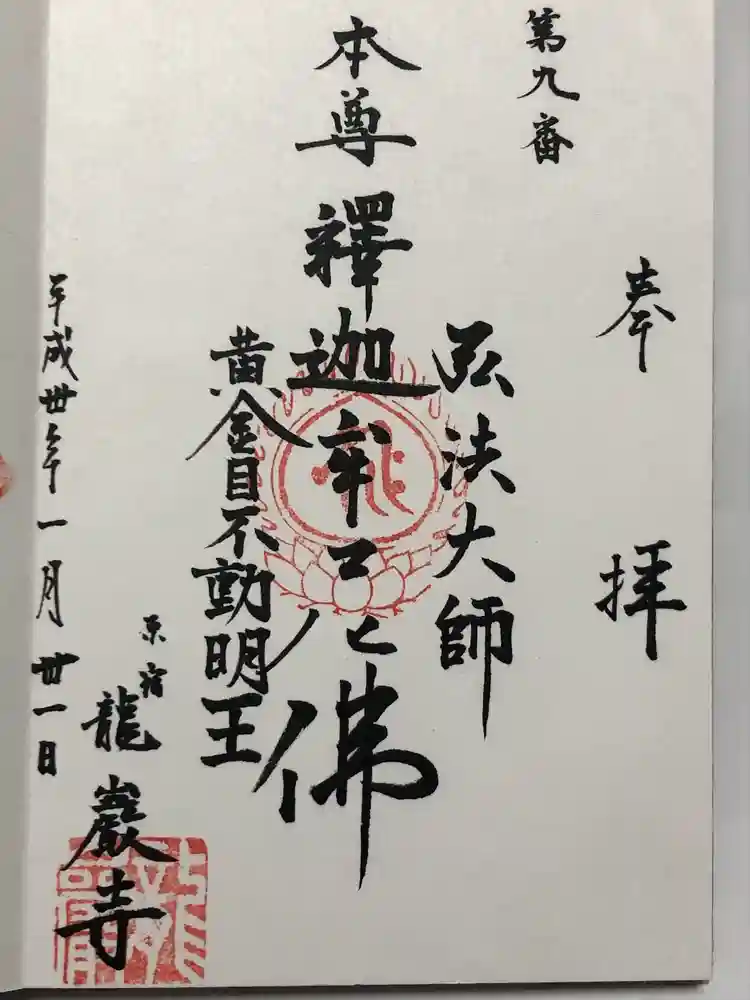 奉拝
第九番
弘法大師
本尊釋迦牟尼佛
黄金目不動明王
平成卅年一月卅一日
原宿
龍巖寺